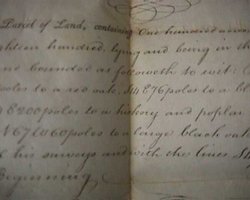 Parcel of Land, containing One hundred acres
ighteen hundred, lying and being in the
and bounded as followeth to wit:
poles to a red oak. S14 E76 poles to a bl
E 200 poles to a hickory and poplar
N67 W 60 poles to a large black oak
his surveys and with the lines S1
Beginning,